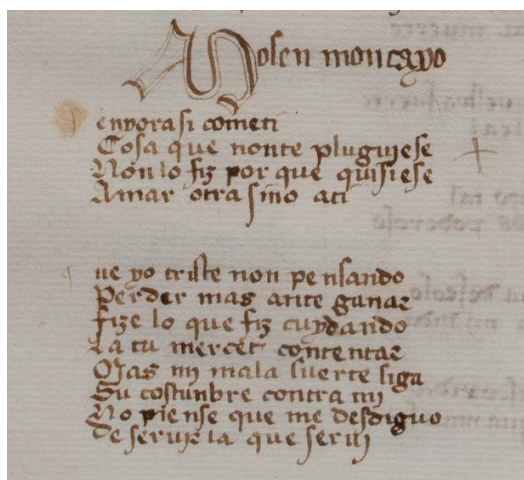 Mosen moncayo
enyorasi cometi
Cosa que nonte pluguiese
Non lo fiz por que quisiese
Amar otra sino ati
ue yo triste non pensando
Perder mas ante ganar
Fize lo que fiz cuydando
La tu mercet contentar
Mas mi mala suerte siga
Su costunbre contra mi
No piense que me desdiguo
De seruir la que serui